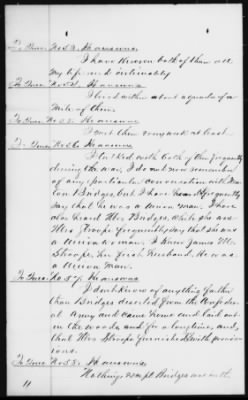 To Ques. No 53. He answers
I have known both of them all
my life and intimately
To Ques. No 54. He answers
I lived within about a quarter of a
mile of them
To Ques. No 55. He answers
I met them very week at least
To Ques. No 56. He answers
I talked with both of them frequently
during the war, I do not now remember
of any particular conversation with
Bridges, but I have heard frequently
say that he was a Union man; I have
also heard Mrs. Bridges, while she was
Mrs Stroope frequently say that she was
a Union woman. I knew James M.
Stroope, her first Husband. He was
a Union man.
To Ques. No 57. He answers
I dont know of anything further
than Bridges deserted from the Confeder
Army and came home and laid out
in the woods and for a long time, and,
that Mrs Stroope furnished with provis
ions.
To Ques. No 58. He answers
Nothing except Bridges was with
11